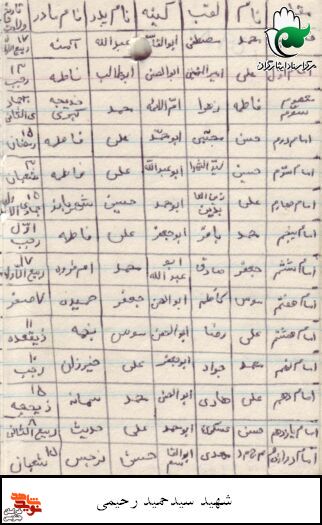 نام لقب کنیه نام پدر نام مادر
محمد مصطفی ابوالقاسم عبدالله آمنه ۱۷
امام اول علی ابوالحسن ابوطالب فاطمه ۱۳ رجب
معصوم سوم فاطمه زهرا محمد خدیجه
امام دوم حسن مجتبی ابومحمد علی فاطمه ۱۵ رمضان
امام سوم حسین ابوعبدالله علی فاطمه ۳ شعبان
امام چهارم علی ابومحمد حسین شهربانو ۱۵
امام پنجم محمد باقر ابوجعفر علی فاطمه اول رجب
امام ششم جعفر صادق ابو عبدالله محمد ام فروه ۱۷ ربیع الاول
امام هفتم موسی کاظم ابوالحسن جعفر حمیده ۷ صفر
امام هشتم علی رضا ابوالحسن موسی نجمه ۱۱ ذیقعده
امام نهم محمد جواد ابوجعفر علی خیزران ۱۰ رجب
امام دهم علی هادی ابوالحسن محمد سمانه ۱۵ ذیحجه
امام یازدهم حسن عسکری ابومحمد علی حدیث ۸ ربیع الثانی
امام دوازدهم م ح م د مهدی ابوالقاسم حسن نرجس ۱۵ شعبان
مرکز اسناد ایثارگران
شهید سیدحمید رحیمی